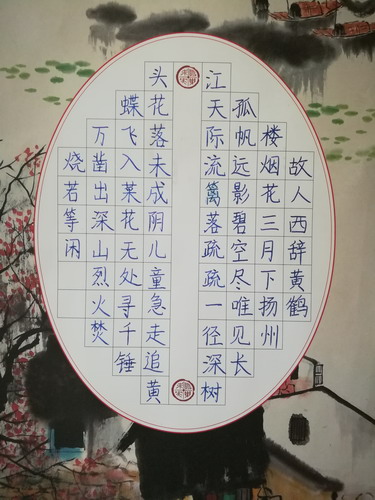 故人西辞黄鹤
楼烟花三月下扬州
孤帆远影碧空尽唯见长
江天际流篱落疏疏一径深树
头花落未成阴儿童急走追黄
蝶飞入某花无处寻千锤
万凿出深山烈火焚
烧若等闲